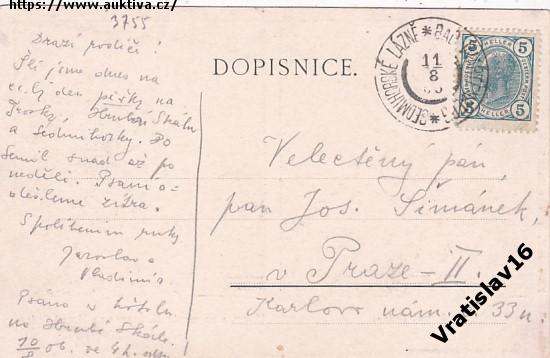 https://www.auktiva.cz/
3755
Drazí rodiče!
Šli jsme dnes na
celý den pěšky na
Trosky, Hrubou Skálu
a Sedmihorky. Do
Semil snad až po
neděli. Psaní o-
dešleme zítra.
S políbením ruky
Jaroslav a
Vladimír
Psáno v hotelu
na Hrubé Skále.
10/8 06. ve 4 h. odp.
DOPISNICE.
SEDMIHORSKÉ LÁZNĚ * BAD
11
8
5 HELLER 5
5 HELLER 5
Veletěný pán,
pan Jos. Šimánek,
v Praze-II.
Karlovo nám. 33n.
Vratislav16